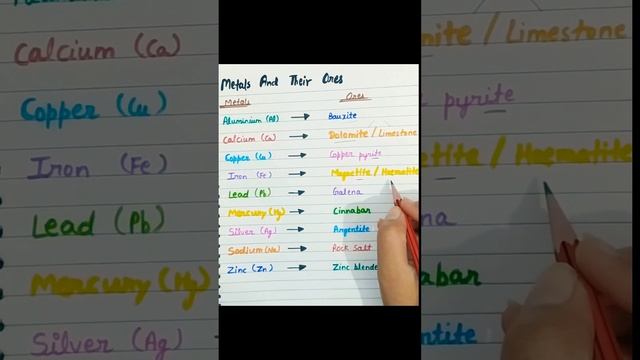 Metals And Their Ores
Metals Ores
Aluminium (Al) → Bauxite
Calcium (Ca) → Dolomite / Limestone
Copper (Cu) → Copper pyrite
Iron (Fe) → Magnetite / Haematite
Lead (Pb) → Galena
Mercury (Hg) → Cinnabar
Silver (Ag) → Argentite
Sodium (Na) → Rock Salt
Zinc (Zn) → Zinc blende
Calcium (Ca)
Copper (Cu)
Iron (Fe)
Lead (Pb)
Mercury (Hg)
Silver (Ag)
mite / Limestone
pyrite
etite / Haematite
na
abar
entite